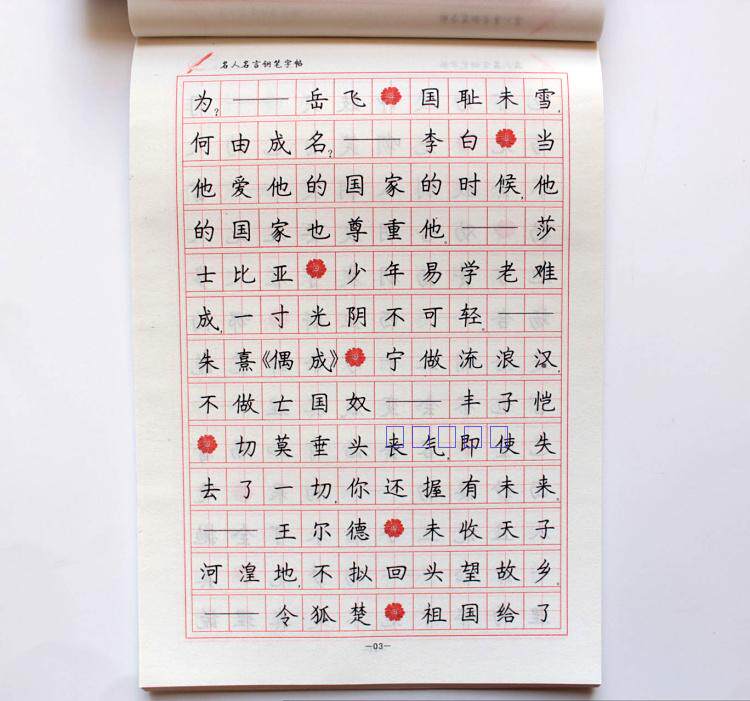 名人名言钢笔字帖
为?——岳飞 国耻未雪,
何由成名?——李白 当
他爱他的国家的时候,他
的国家也尊重他。——莎
士比亚 少年易学老难
成,一寸光阴不可轻。——
朱熹《偶成》 宁做流浪汉,
不做士国奴——丰子恺
切莫垂头丧气,即使失
去了一切,你还握有未来。
——王尔德 未收天子
河湟地,不拟回头望故乡。
——令狐楚 祖国给了
—03—